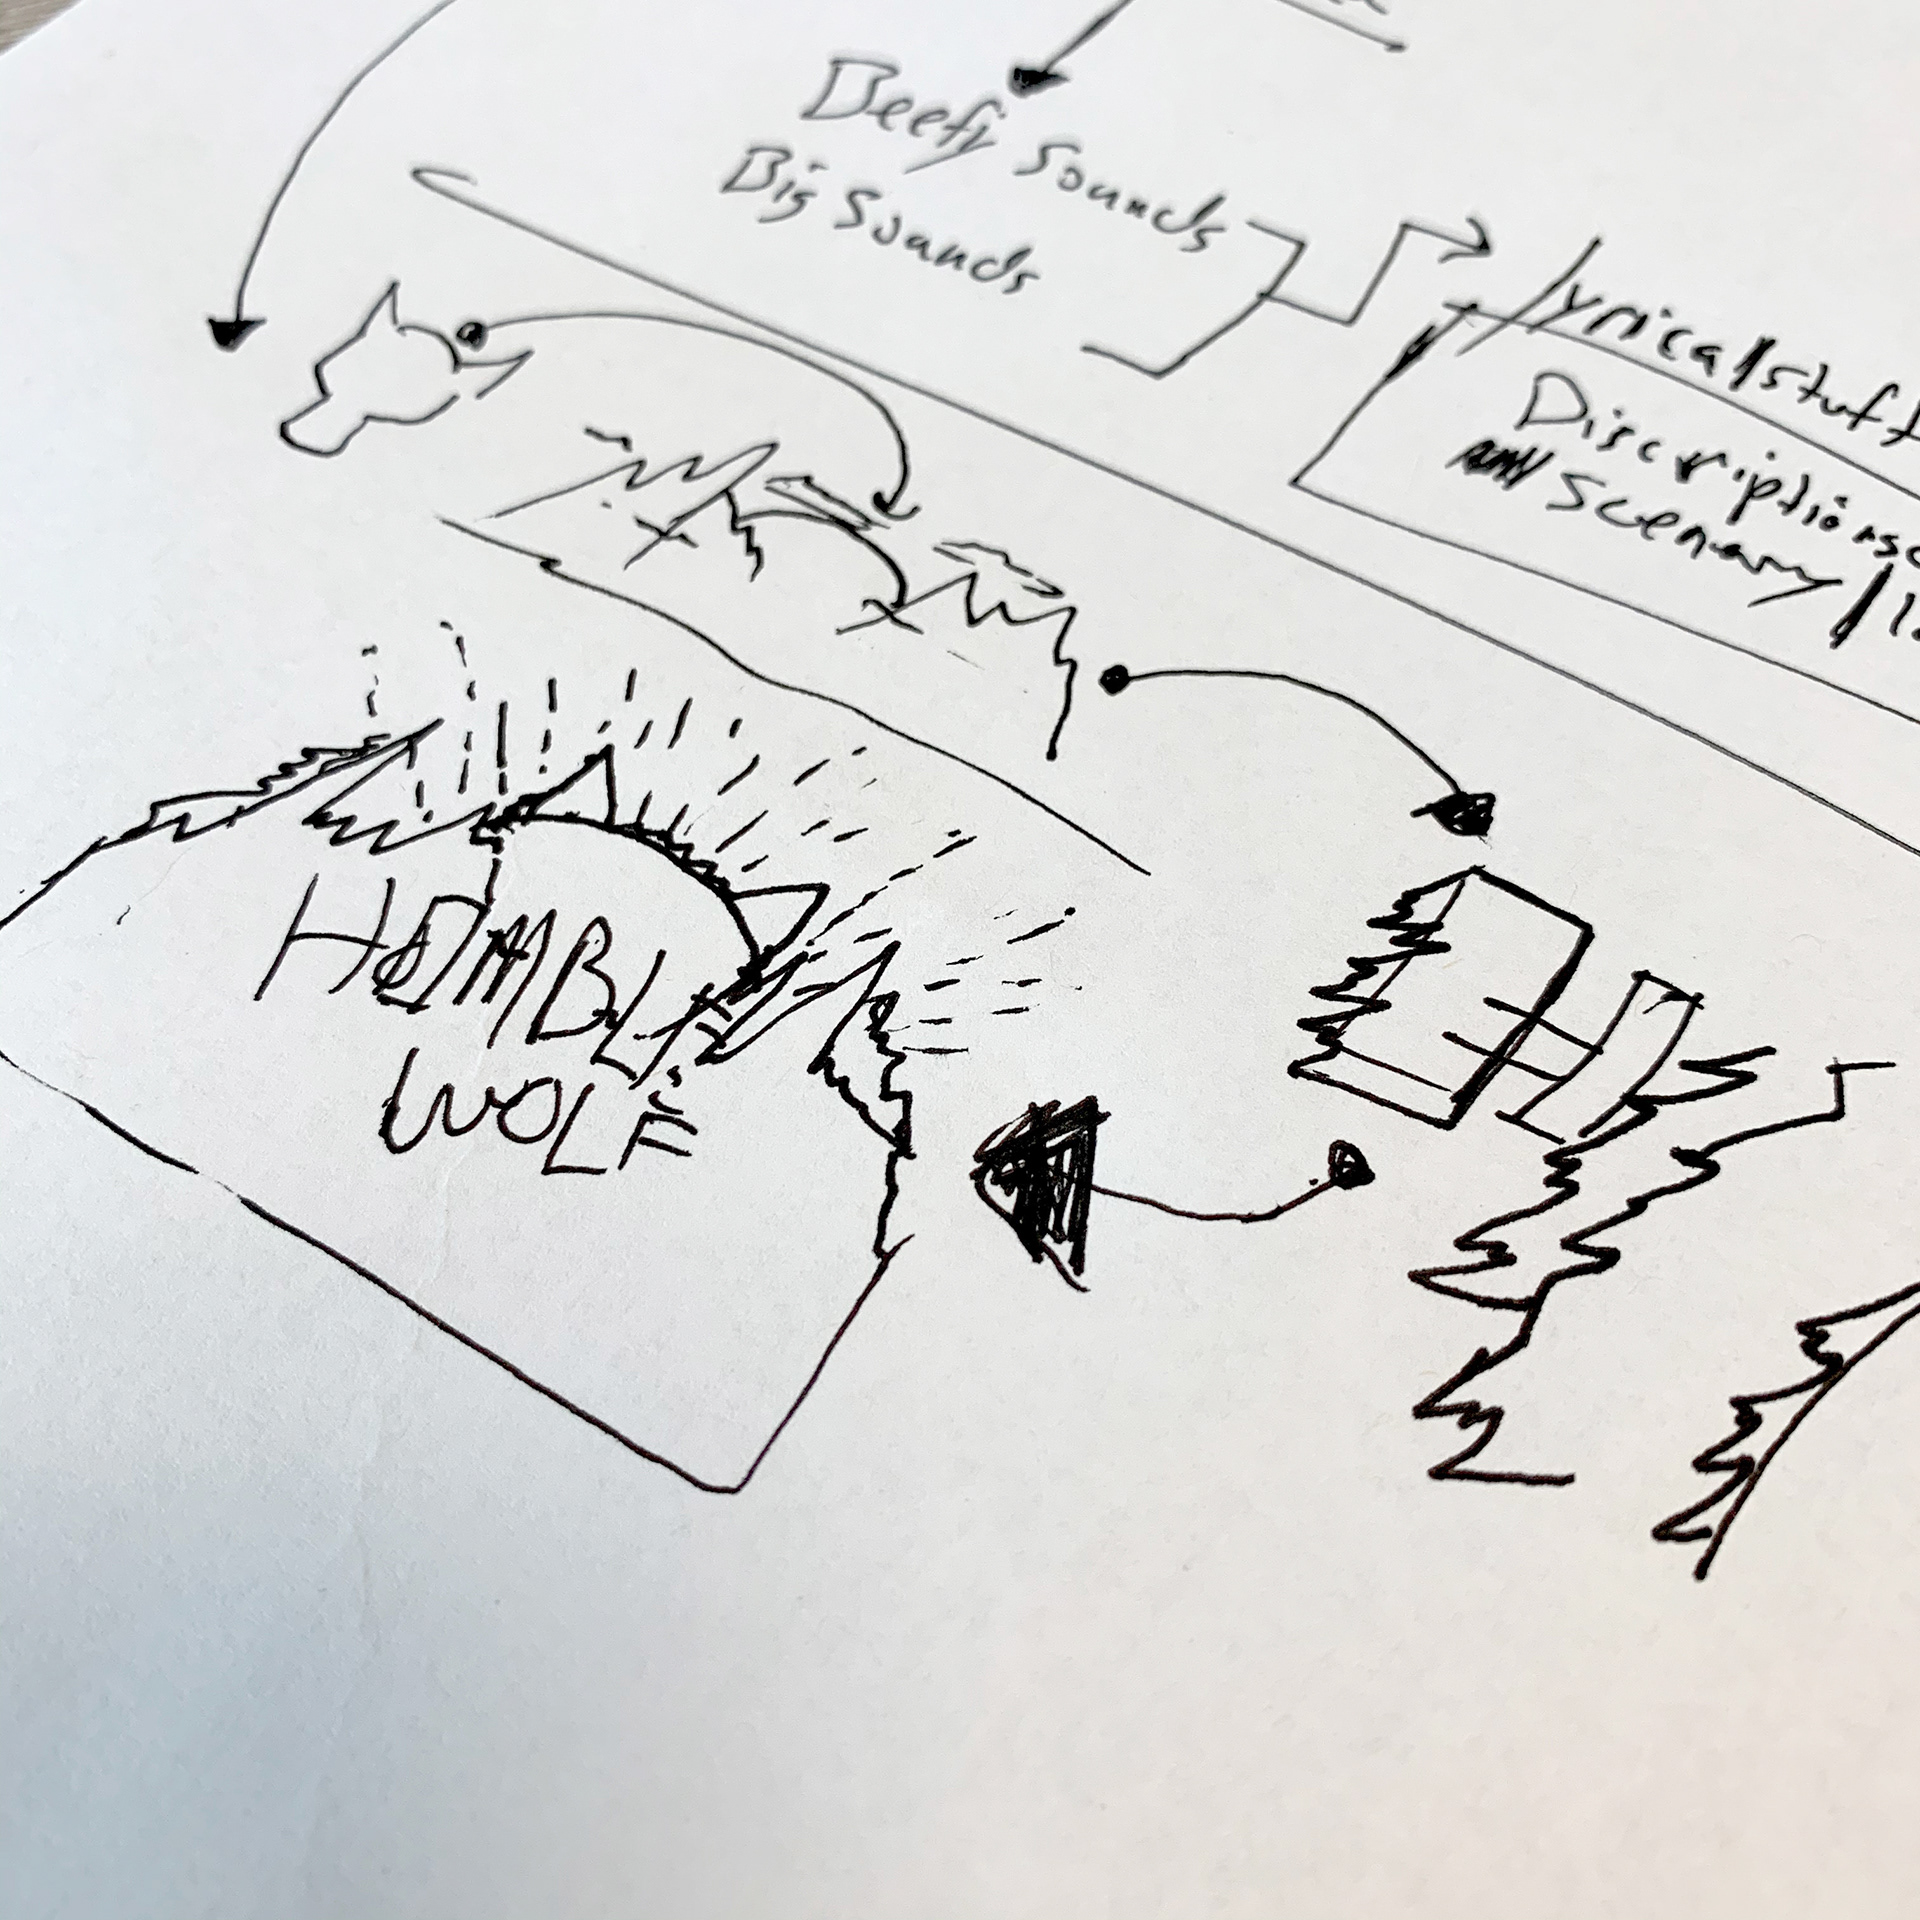 Beefy Sounds
Big Sounds
lyrical stuff
Discriptions
Scenary /
HUMBLE
WOLF